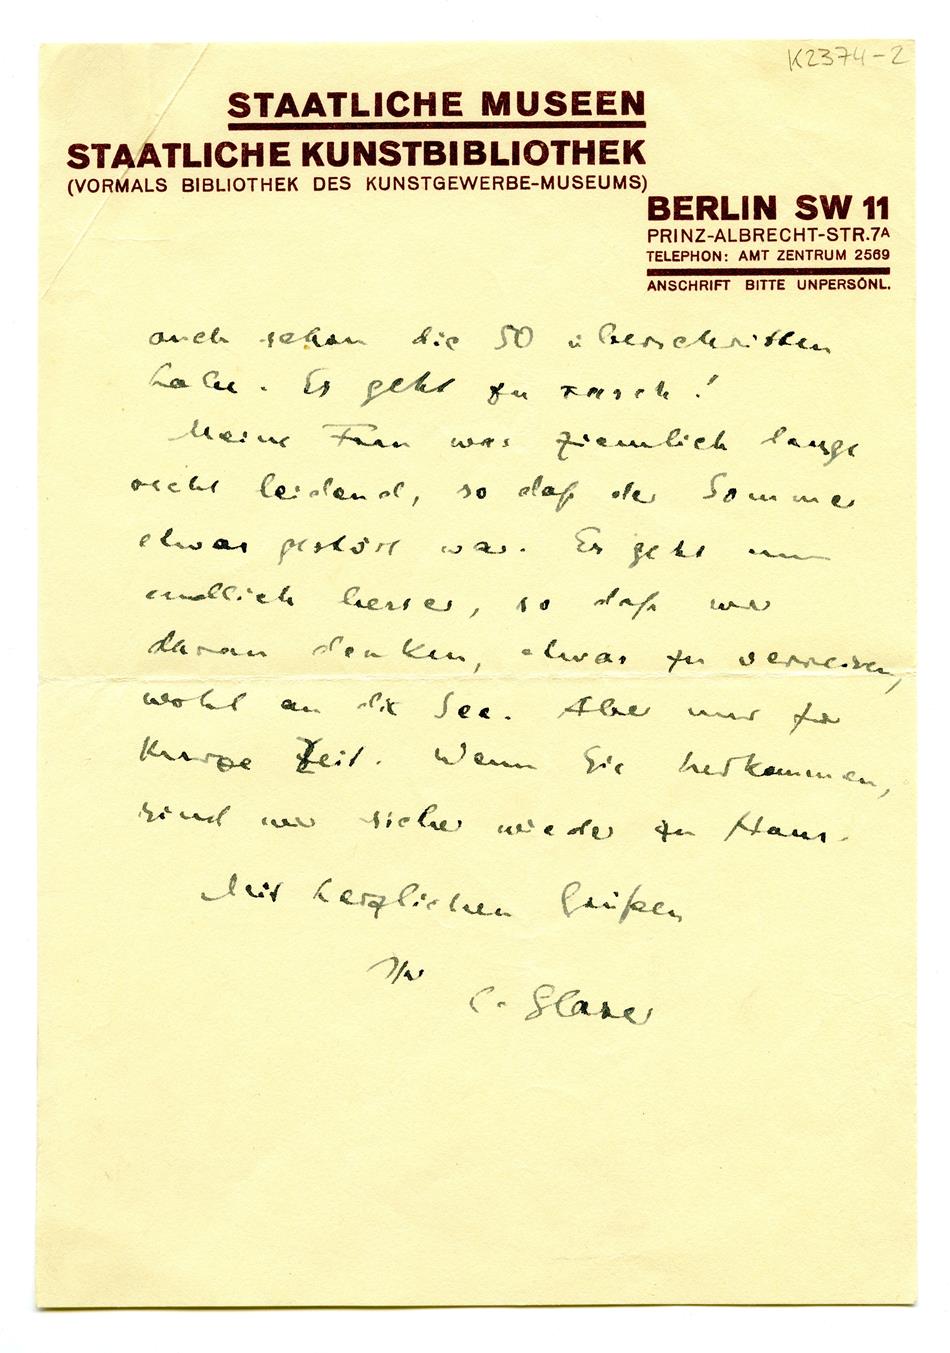 K2374-2
STAATLICHE MUSEEN
STAATLICHE KUNSTBIBLIOTHEK
(VORMALS BIBLIOTHEK DES KUNSTGEWERBE-MUSEUMS)
BERLIN SW 11
PRINZ-ALBRECHT-STR.7A
TELEPHON: AMT ZENTRUM 2569
ANSCHRIFT BITTE UNPERSÖNL.
auch schon die 50 überschritten
habe. Es geht zu rasch!
Meine Frau war ziemlich lange
recht leidend, so daß der Sommer
etwas gestört war. Es geht nun
endlich besser, so daß wir
daran denken, etwas zu verreisen,
wohl an die See. Aber nur für
kurze Zeit. Wenn Sie herkommen,
sind wir sicher wieder zu Haus.
Mit herzlichen Grüßen
Ihr
C. Glaser